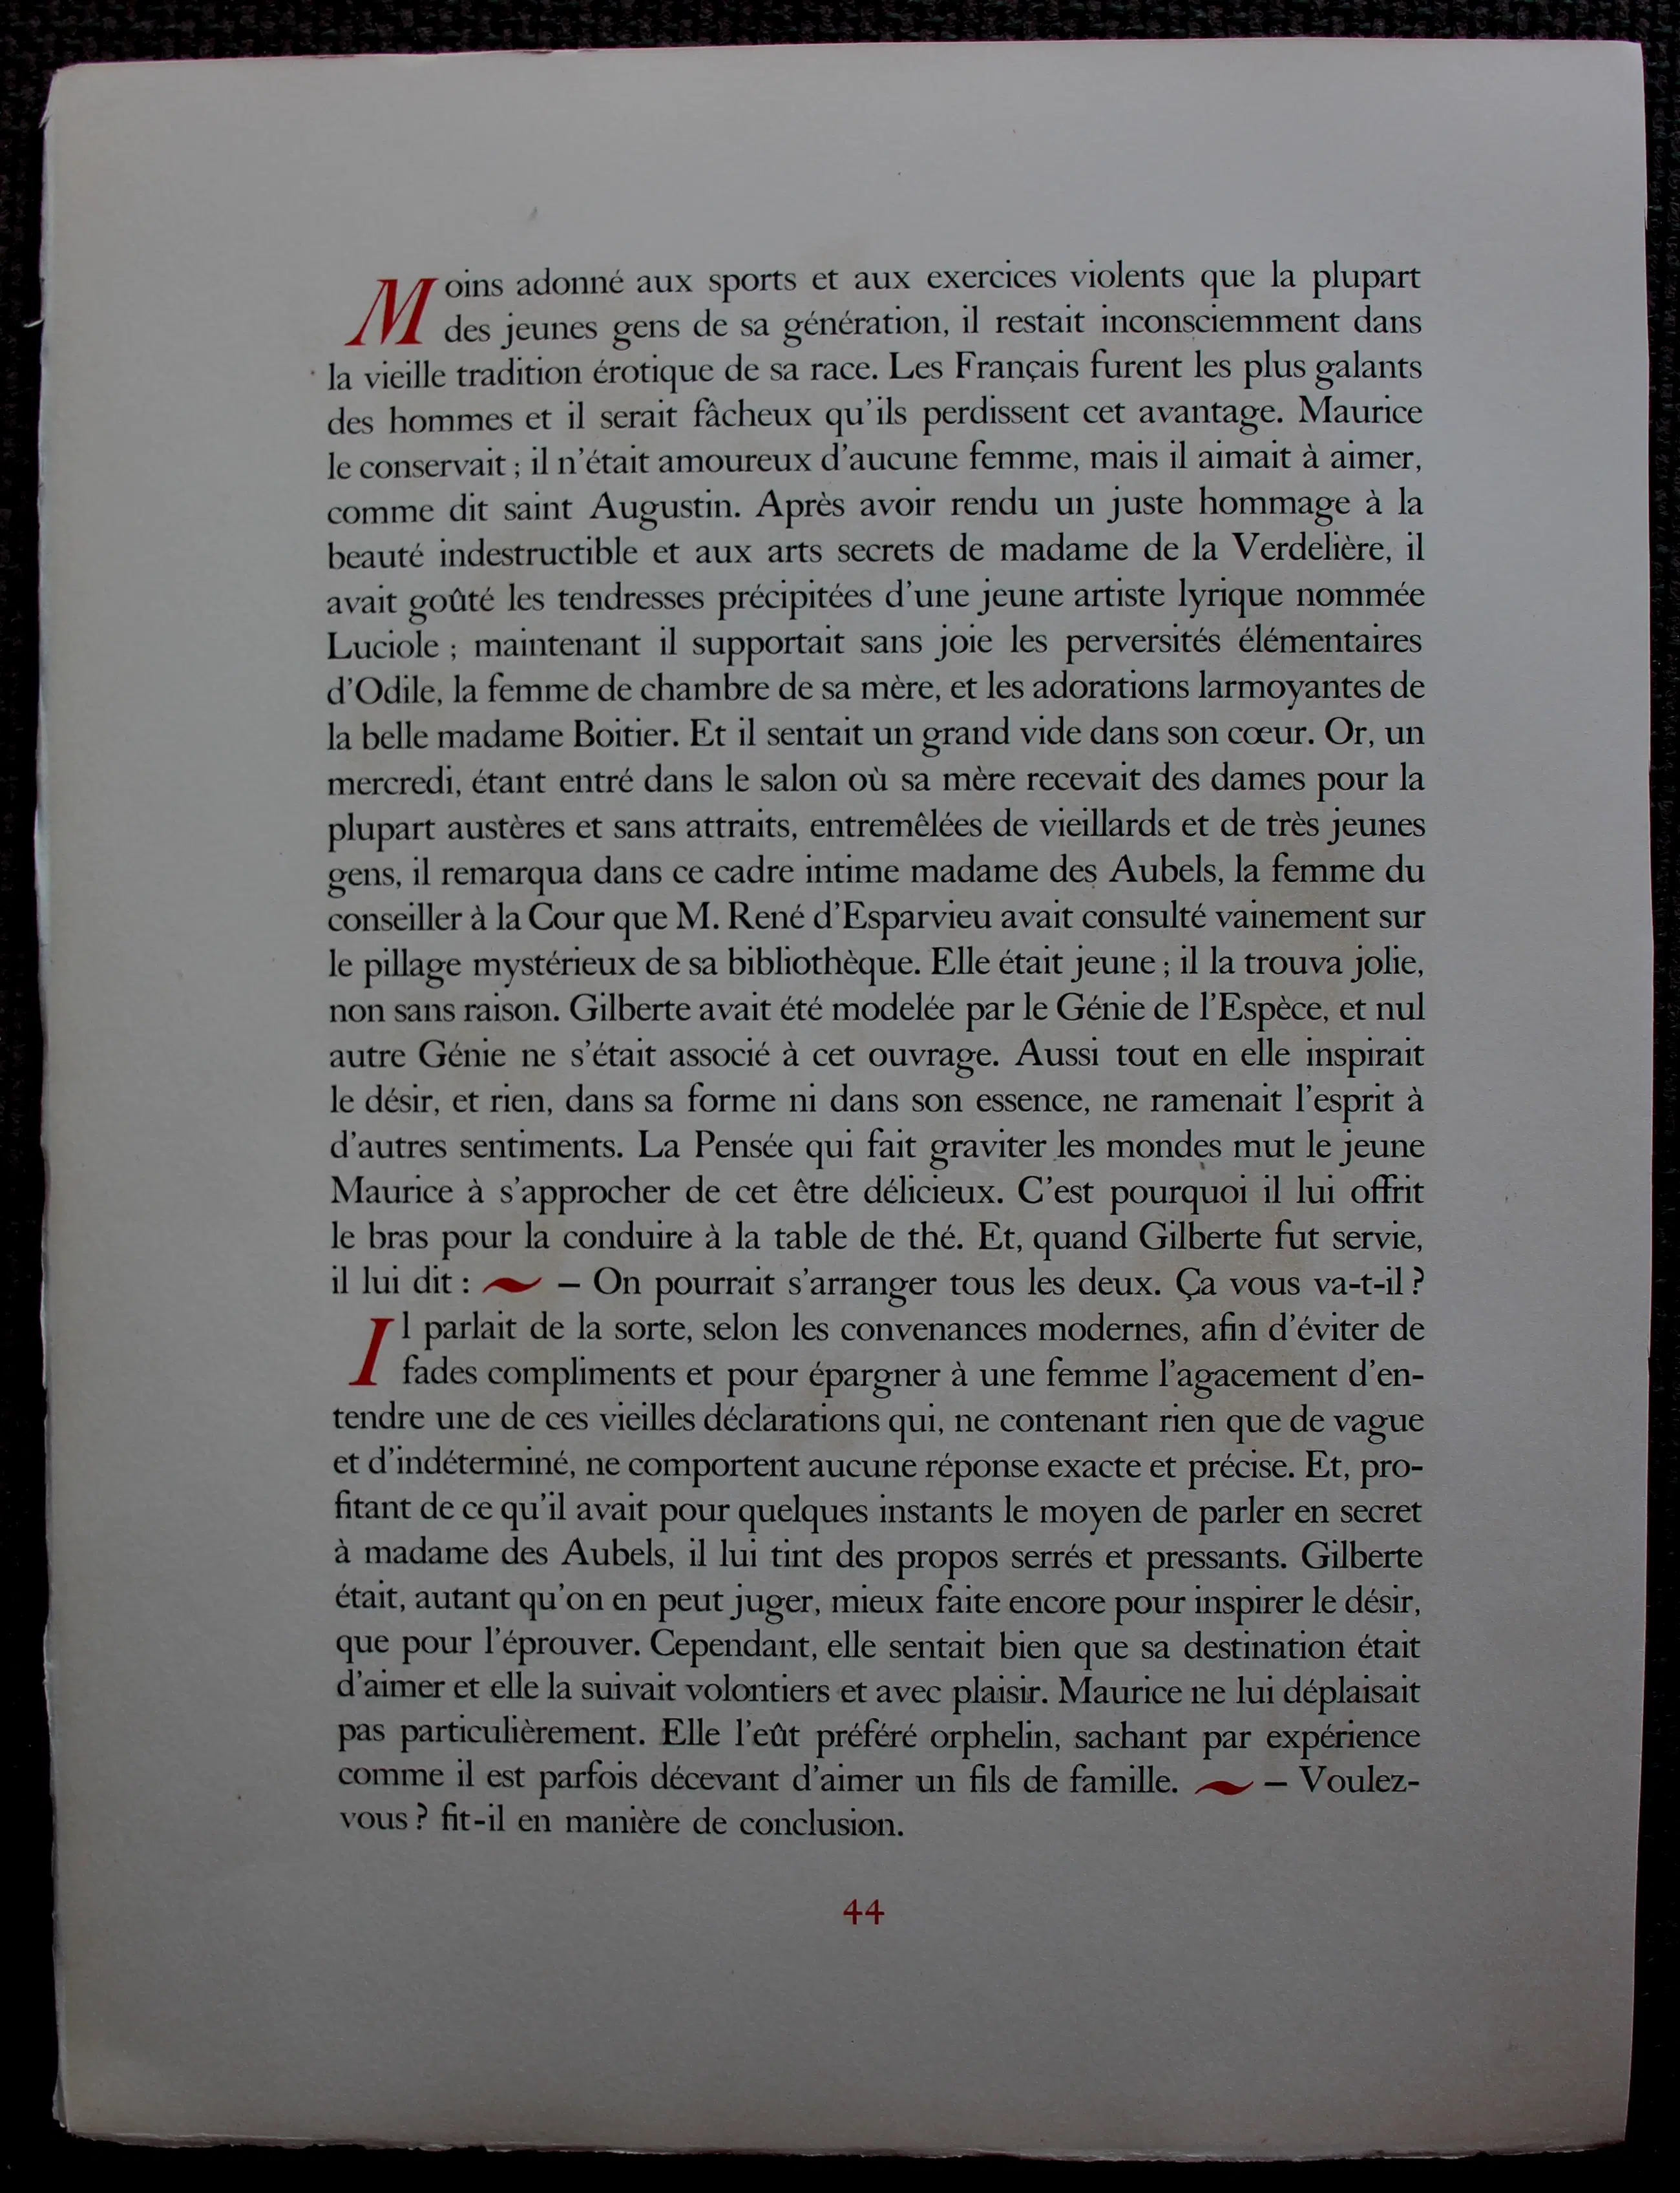 Moins adonné aux sports et aux exercices violents que la plupart
des jeunes gens de sa génération, il restait inconsciemment dans
la vieille tradition érotique de sa race. Les Français furent les plus galants
des hommes et il serait fâcheux qu'ils perdissent cet avantage. Maurice
le conservait ; il n'était amoureux d'aucune femme, mais il aimait à aimer,
comme dit saint Augustin. Après avoir rendu un juste hommage à la
beauté indestructible et aux arts secrets de madame de la Verdelière, il
avait goûté les tendresses précipitées d'une jeune artiste lyrique nommée
Luciole ; maintenant il supportait sans joie les perversités élémentaires
d'Odile, la femme de chambre de sa mère, et les adorations larmoyantes de
la belle madame Boitier. Et il sentait un grand vide dans son cœur. Or, un
mercredi, étant entré dans le salon où sa mère recevait des dames pour la
plupart austères et sans attraits, entremêlées de vieillards et de très jeunes
gens, il remarqua dans ce cadre intime madame des Aubels, la femme du
conseiller à la Cour que M. René d'Esparvieu avait consulté vainement sur
le pillage mystérieux de sa bibliothèque. Elle était jeune ; il la trouva jolie,
non sans raison. Gilberte avait été modelée par le Génie de l'Espèce, et nul
autre Génie ne s'était associé à cet ouvrage. Aussi tout en elle inspirait
le désir, et rien, dans sa forme ni dans son essence, ne ramenait l'esprit à
d'autres sentiments. La Pensée qui fait graviter les mondes mut le jeune
Maurice à s'approcher de cet être délicieux. C'est pourquoi il lui offrit
le bras pour la conduire à la table de thé. Et, quand Gilberte fut servie,
il lui dit : ~ – On pourrait s'arranger tous les deux. Ça vous va-t-il ?
Il parlait de la sorte, selon les convenances modernes, afin d'éviter de
fades compliments et pour épargner à une femme l'agacement d'en-
tendre une de ces vieilles déclarations qui, ne contenant rien que de vague
et d'indéterminé, ne comportent aucune réponse exacte et précise. Et, pro-
fitant de ce qu'il avait pour quelques instants le moyen de parler en secret
à madame des Aubels, il lui tint des propos serrés et pressants. Gilberte
était, autant qu'on en peut juger, mieux faite encore pour inspirer le désir,
que pour l'éprouver. Cependant, elle sentait bien que sa destination était
d'aimer et elle la suivait volontiers et avec plaisir. Maurice ne lui déplaisait
pas particulièrement. Elle l'eût préféré orphelin, sachant par expérience
comme il est parfois décevant d'aimer un fils de famille. ~ – Voulez-
vous ? fit-il en manière de conclusion.
44